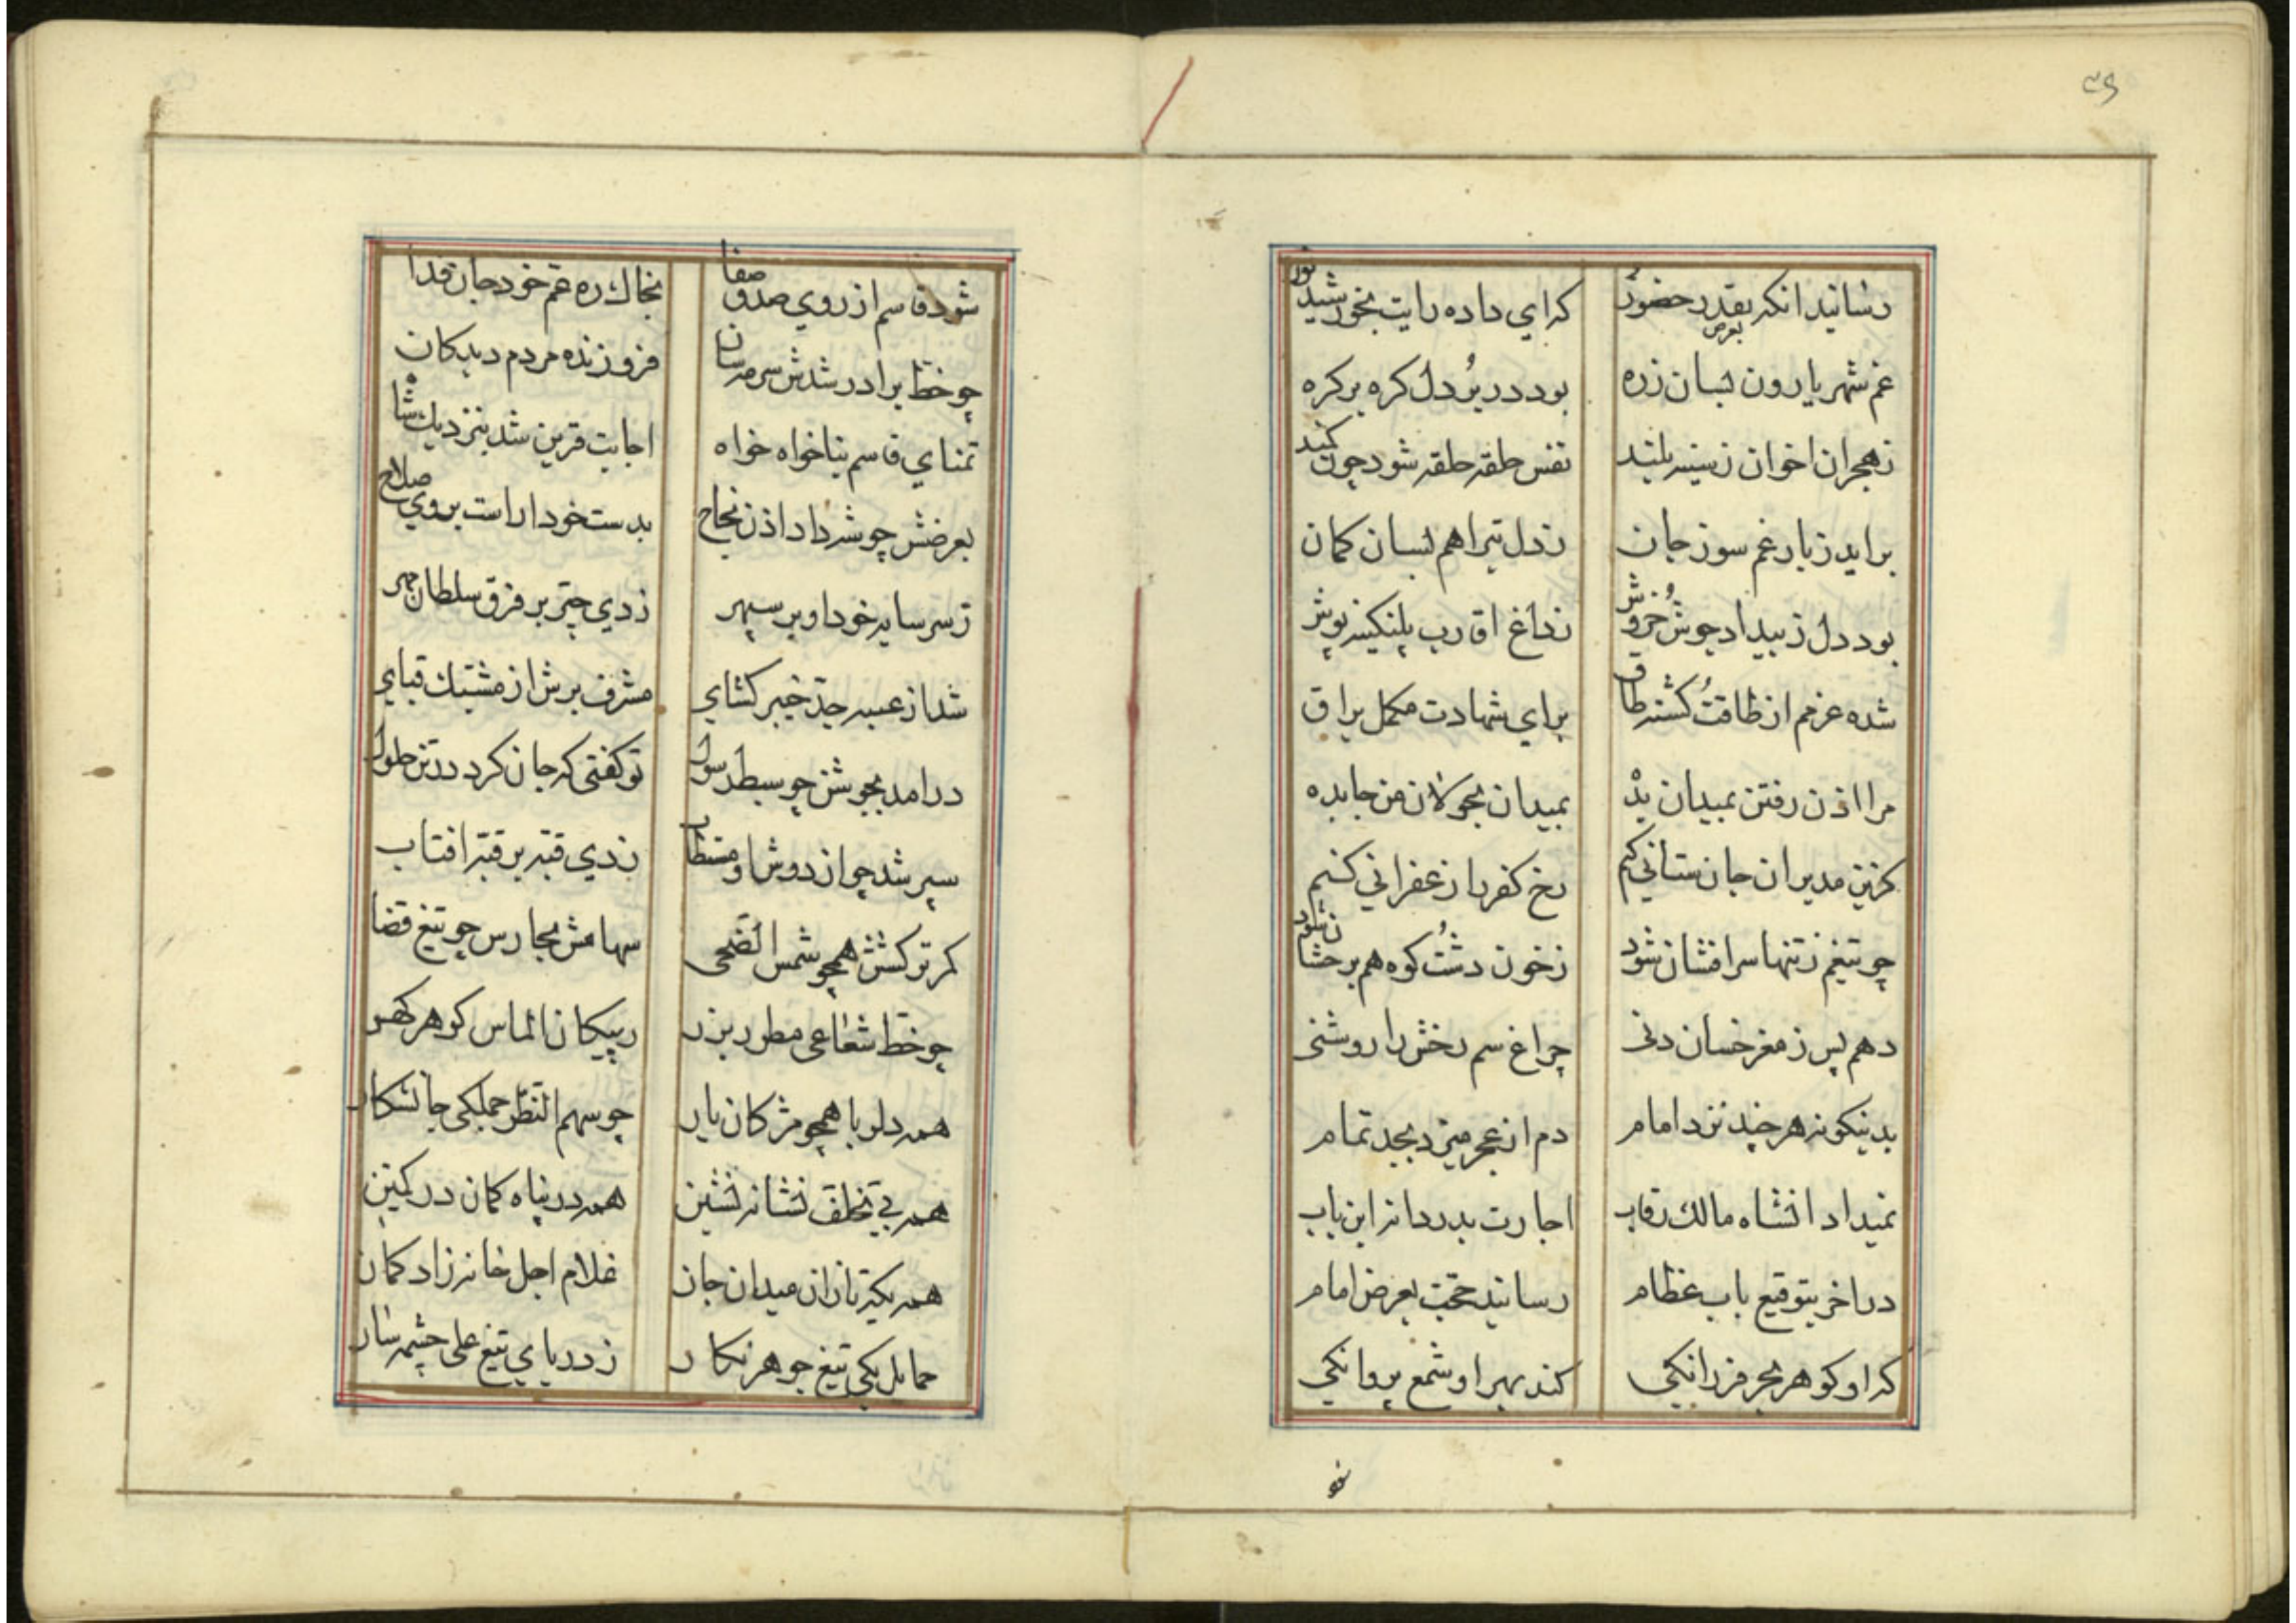 رسانید انکه بقدر حضور
بعرض
که ای داده رایت بخورشید نور
غم شهریارون لبسان زره
بود در بر دل کره بر کره
زهجران اخوان ز سینه بلند
نفس حلقه حلقه شود چون کمند
براید ز بار غم سوز جان
ز دل تیراهم لبسان کمان
بود دل ز بیداد جوش خروش
ز داغ اقارب پلنکینه پوش
شده عزمم از طاقت کشته طاق
برای شهادت مکمل براق
مرا اذن رفتن بمیدان بده
بمیدان بجولان من جا بده
کزین مدبران جان ستانی کنم
رخ کفر را زعفرانی کنم
چو تیغم ز تنها سر افشان شود
ز خون دشت کوه هم بدخشان شود
دهم پس ز مغز خسان دنی
چراغ سم رخش را روشنی
بدینکونه هر چند نزد امام
دم از عجز میزد بجد تمام
نمیداد انشاه مالک رقاب
اجازت بدردانه این باب
در اخر بتوقیع باب عظام
رسانید حجت بعرض امام
که او کوهر بحر فرزانکی
کند بهر او شمع پروانکی
شود قاسم از روی صدق صفا
بخاک ره عم خود جان فدا
چو خط برادر شدش سرمه سان
فروزنده مردم دیدکان
تمنای قاسم بناخواه خواه
اجابت قرین شد بنزدیک شاه
بعرضش چو شه داد اذن نجاح
بدست خود اراست بروی صلاح
ز سر سایه خود او بر سپهر
زدی چتر بر فرق سلطان مهر
شد از عیبه جد خیبر کشای
مشرف برش از مشبک قبای
در امد بجوشن چو سبط رسول
تو کفتی که جان کرد در تن حلول
سپر شد چو از دوش او مستطاب
زدی قبه بر قبه افتاب
کمر ترکشش همچو شمس الضحی
سهامش بجا رس چو تیغ قضا
چو خط شعاعی مطرز بزر
ز پیکان الماس کوهر کهر
همه دلربا همچو مژکان یار
چو سهم النظر جملکی جانشکار
همه بی تخلف نشانه نشین
همه در پناه کمان در کمین
همه یکه تازان میدان جان
غلام اجل خانه زاد کمان
حمایل یکی تیغ جوهر نکار
ز دریای تیغ علی چشمه سار